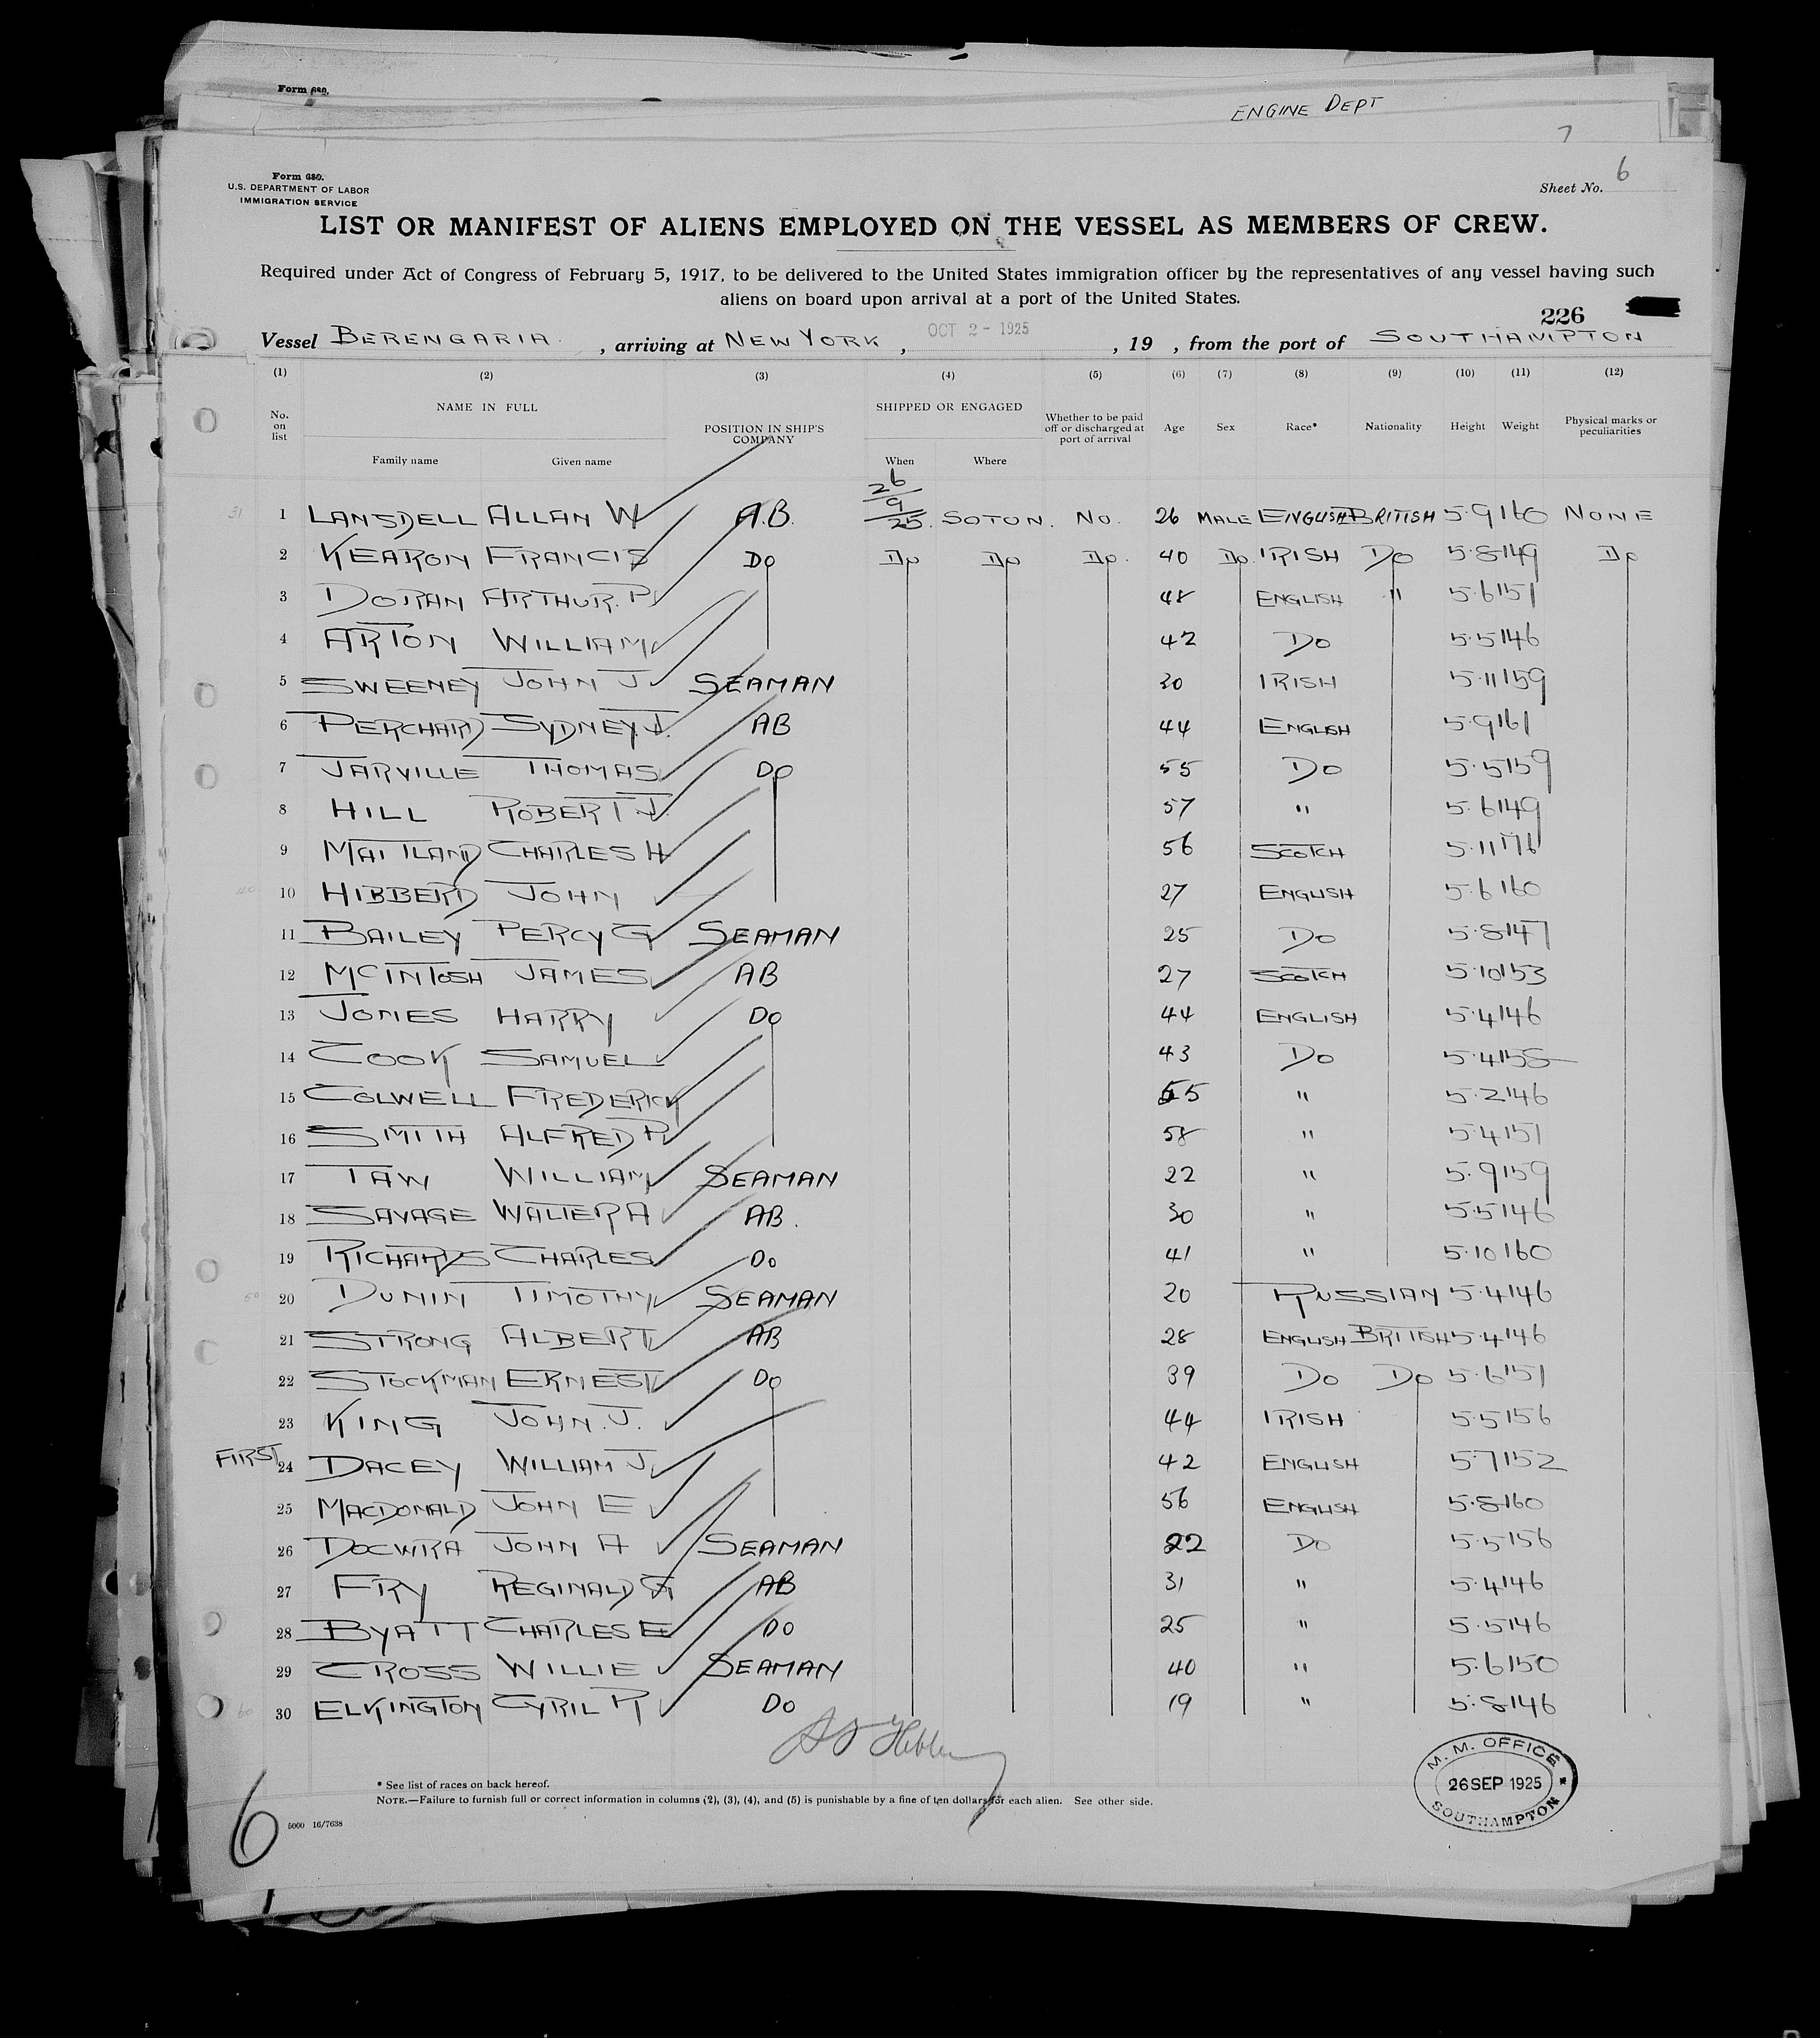 Form 680.
ENGINE DEPT
7
Form 680.
U.S. DEPARTMENT OF LABOR
IMMIGRATION SERVICE
Sheet No. 6
LIST OR MANIFEST OF ALIENS EMPLOYED ON THE VESSEL AS MEMBERS OF CREW.
Required under Act of Congress of February 5, 1917, to be delivered to the United States immigration officer by the representatives of any vessel having such
aliens on board upon arrival at a port of the United States.
226
Vessel BERENGARIA , arriving at NEW YORK , OCT 2 - 1925 , 19 , from the port of SOUTHAMPTON
(1) (2) (3) (4) (5) (6) (7) (8) (9) (10) (11) (12)
No. on list NAME IN FULL POSITION IN SHIP'S COMPANY SHIPPED OR ENGAGED Whether to be paid off or discharged at port of arrival Age Sex Race* Nationality Height Weight Physical marks or peculiarities
Family name Given name When Where
31 1 LANSDELL ALLAN W A.B. 26/9/25. SOTON. No. 26 MALE ENGLISH BRITISH 5.9 160 NONE
2 KEARON FRANCIS Do Do Do Do. 40 Do. IRISH Do 5.8 149 Do
3 DORAN ARTHUR.P. 48 ENGLISH " 5.6 151
4 ARTON WILLIAM 42 Do 5.5 146
5 SWEENEY JOHN J SEAMAN 30 IRISH 5.11 159
6 PERCHARD SYDNEY J. AB 44 ENGLISH 5.9 161
7 JARVILLE THOMAS Do 55 Do 5.5 159
8 HILL ROBERT J. 57 " 5.6 149
9 MAITLAND CHARLES H 56 SCOTCH 5.11 176
40 10 HIBBERD JOHN 27 ENGLISH 5.6 160
11 BAILEY PERCY G SEAMAN 25 Do 5.8 147
12 MCINTOSH JAMES AB 27 SCOTCH 5.10 153
13 JONES HARRY Do 44 ENGLISH 5.4 146
14 COOK SAMUEL 43 Do 5.4 158
15 COLWELL FREDERICK 55 " 5.2 146
16 SMITH ALFRED R 58 " 5.4 151
17 TAW WILLIAM SEAMAN 22 " 5.9 159
18 SAVAGE WALTER A AB. 30 " 5.5 146
19 RICHARDS CHARLES Do 41 " 5.10 160
50 20 DUNIN TIMOTHY SEAMAN 20 RUSSIAN 5.4 146
21 STRONG ALBERT AB 28 ENGLISH BRITISH 5.4 146
22 STOCKMAN ERNEST Do 39 Do Do 5.6 151
23 KING JOHN.J. 44 IRISH 5.5 156
FIRST 24 DACEY WILLIAM J 42 ENGLISH 5.7 152
25 MACDONALD JOHN E 56 ENGLISH 5.8 160
26 DOCWRA JOHN A SEAMAN 22 Do 5.5 156
27 FRY REGINALD G AB 31 " 5.4 146
28 BYATT CHARLES E Do 25 " 5.5 146
29 CROSS WILLIE SEAMAN 40 " 5.6 150
60 30 ELKINGTON CYRIL R Do 19 " 5.8 146
M. M. OFFICE
26 SEP 1925
SOUTHAMPTON
* See list of races on back hereof.
NOTE.—Failure to furnish full or correct information in columns (2), (3), (4), and (5) is punishable by a fine of ten dollars for each alien. See other side.
6
5000 16/7638